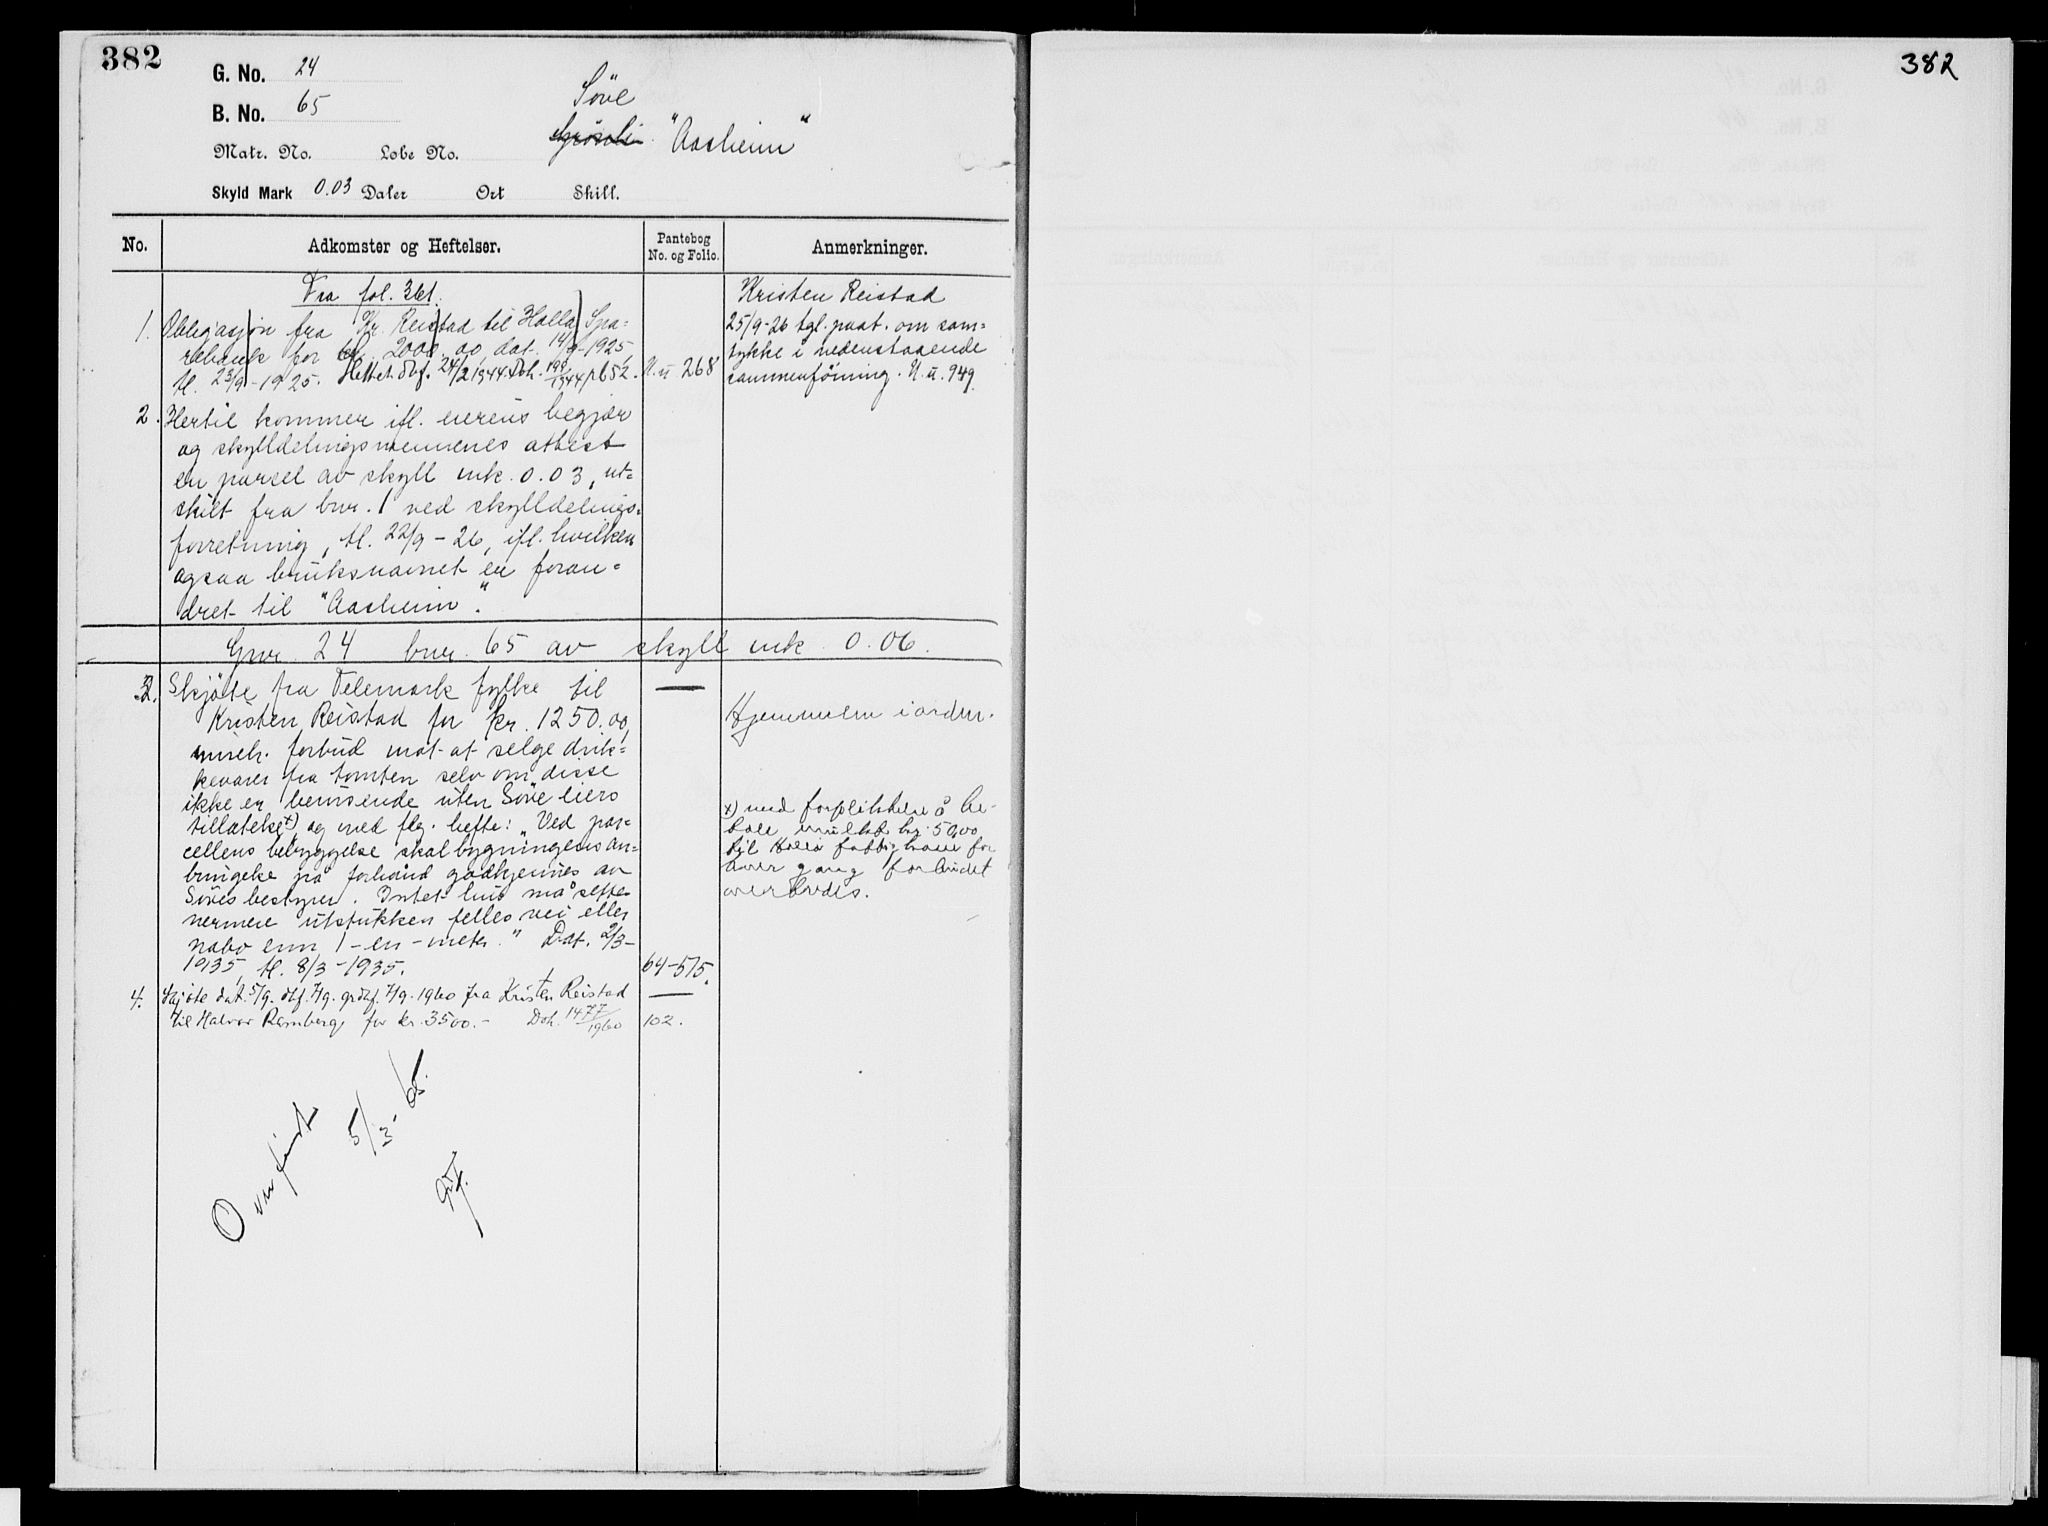 382
G. No. 24
B. No. 65
Søve
"Aasheim"
Matr. No. Løbe No.
Skyld Mark 0.03 Daler Ort Skill.
No. Adkomster og Heftelser. Pantebog No. og Folio. Anmerkninger.
Fra fol. 361.
1. Obligasjon fra Kr. Reistad til Holla Spa=
rebank for kr. 2000.00, dat. 14/9-1925,
tl. 23/9-1925. Slettet dbf. 24/2 1944. Dok. 199/1944 N. ü 268
Kristen Reistad
25/9-26 tgl. paat. om sam=
tykke i nedenstaaende
sammenföining. N. ü. 949.
2. Hertil kommer ifl. eierens begjær
og skylldelingsmennenes attest
en parsel av skyll mk. 0.03, ut=
skilt fra bnr. 1 ved skylldelings=
forretning, tl. 22/9-26, ifl. hvilken
ogsaa bruksnavnet er foran=
dret til "Aasheim".
Gnr. 24 bnr. 65 av skyll mk. 0.06.
3. Skjöte fra Telemark fylke til
Kristen Reistad for kr. 1250.00,
forbud mot at selge drik=
kevarer fra tomten selv om disse
ikke er berusende uten Söve eiers
tillatelse x) og med flg. hefte: "Ved par=
cellens bebyggelse skal bygningens an=
bringelse på forhånd godkjennes av
Söves bestyrer. Intet hus må settes
nermere utstukken felles vei eller
nabo enn 1-en-meter." Dat. 2/3-
1935, tl. 8/3-1935. 64-575.
Hjemmelen i orden.
x) med forpliktelse å be-
tale mulkt kr. 50,00
til Holla fattigkasse for
hver gang forbudet
overtredes.
4. Skjöte dat. 5/9. dbf. 7/9. grdbf. 7/9. 1960 fra Kristen Reistad
til Halvor Ramberg for kr. 3500.- Dok. 1477/1960 102.
Overfört 5/3-65.
382